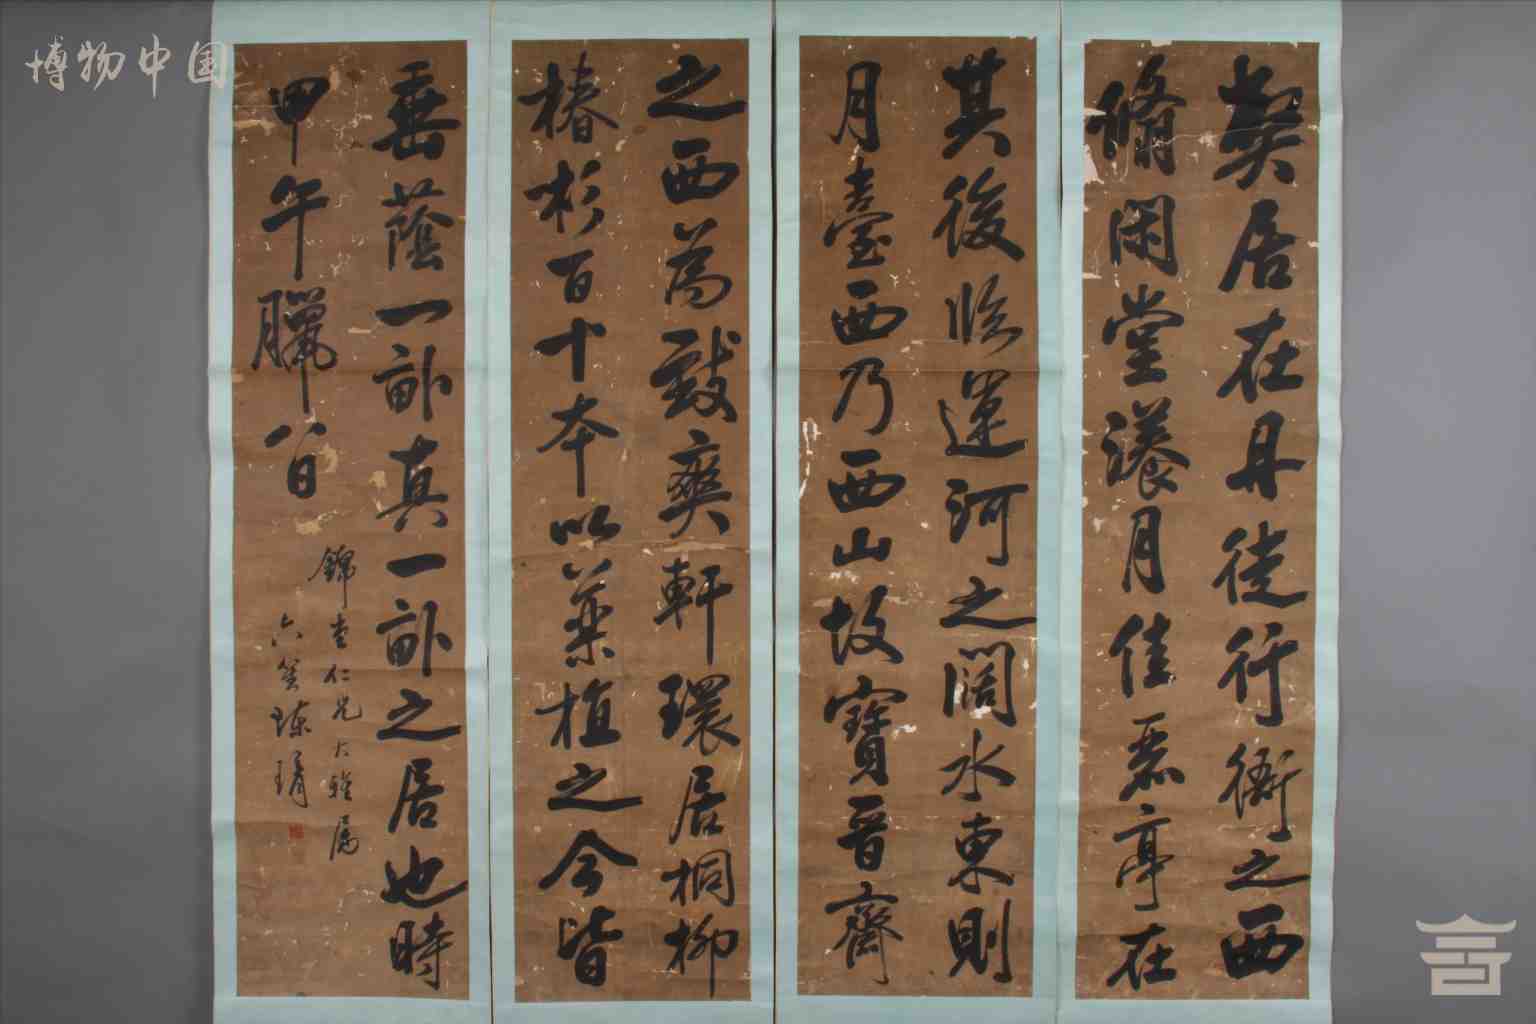 弊居在丹徒行衙之西
翛閑堂漾月佳麗亭在
其後臨運河之闊水東則
月臺西乃西山故寶晉齋
之西為致爽軒環居桐柳
椿杉百十本以藥植之今皆
垂蔭一畝真一畝之居也時
甲午臘八日
錦堂仁兄大雅屬
六笙陳琇
博物中国